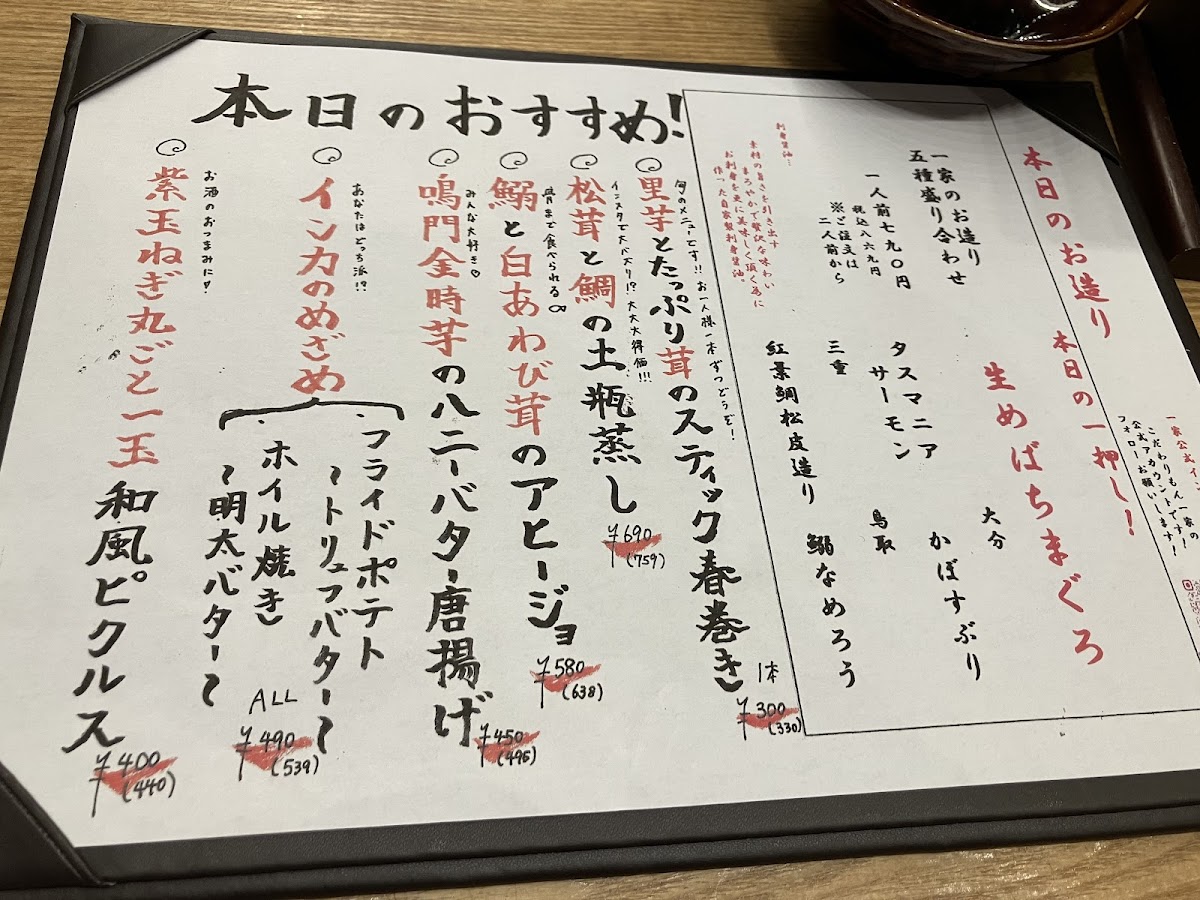 本日のおすすめ!
一家公式イン
こだわりもん一家の
公式アカウントです!
フォローお願いします!
本日のお造り
本日の一押し!
生めばちまぐろ
一家のお造り
五種盛り合わせ
一人前七九〇円
税込八六九円
※ご注文は
二人前から
大分 かぼすぶり
タスマニア
サーモン
鳥取
三重
鰯なめろう
紅葉鯛松皮造り
刺身醤油…
素材の旨さを引き出す
まろやかで贅沢な味わい
お刺身を更に美味しく頂く為に
作った自家製刺身醤油。
旬のメニューです!! お一人様一本ずつどうぞ!
里芋とたっぷり茸のスティック春巻き
1本
¥300
(330)
インスタで大バズリ!? 大大大得価!!!
松茸と鯛の土瓶蒸し
¥690
(759)
骨まで食べられる∞
鰯と白あわび茸のアヒージョ
¥580
(638)
みんな大好き♡
鳴門金時芋のハニーバター唐揚げ
¥450
(495)
あなたはどっち派!?
インカのめざめ
フライドポテト
~トリュフバター~
ホイル焼き
~明太バター~
ALL
¥490
(539)
お酒のおつまみに!
紫玉ねぎ丸ごと一玉 和風ピクルス
¥400
(440)